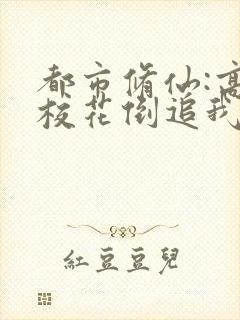 都市脩仙:高
校花倒追我
紅豆豆兒